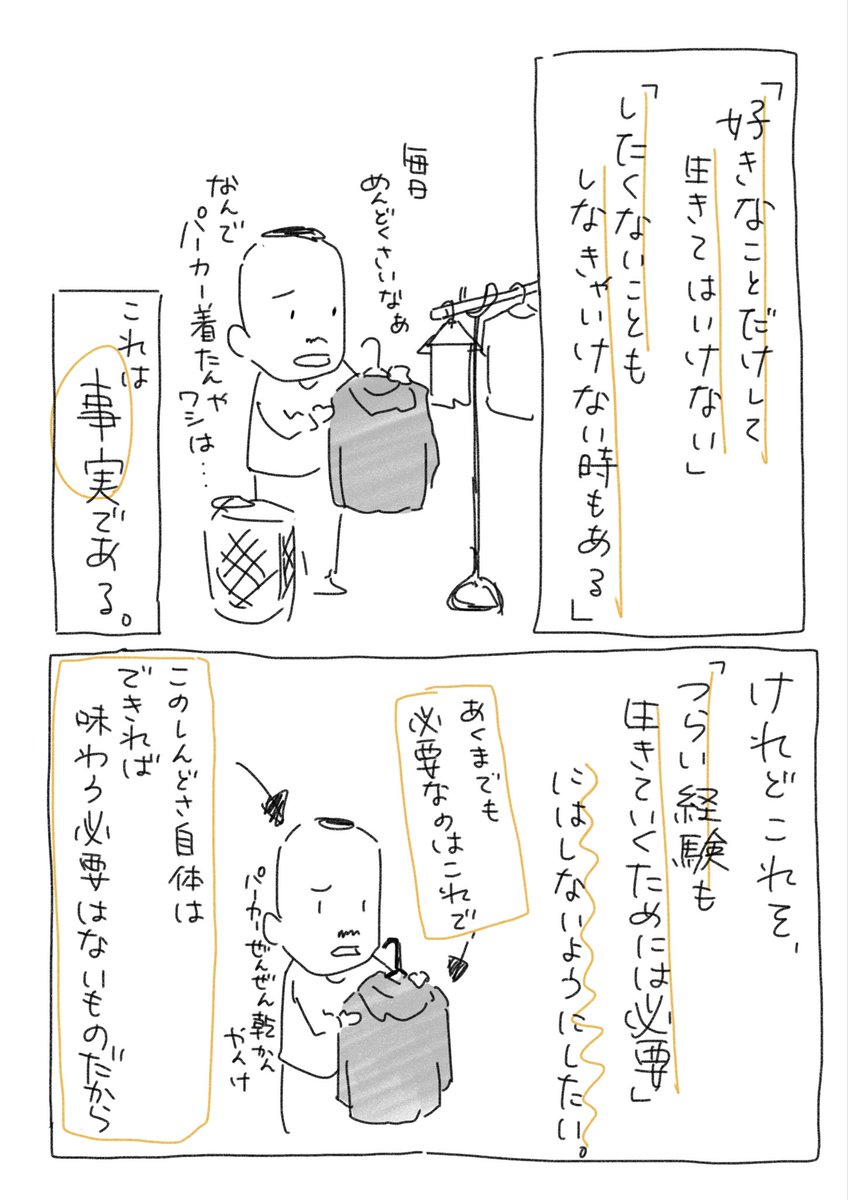 「好きなことだけして
生きてはいけない」
「したくないことも
しなきゃいけない時もある」
毎日
めんどくさいなぁ
なんで
パーカー着たんや
ワシは…
これは
事実である。
けれどこれそ、
「つらい経験も
生きていくためには必要」
にはしないようにしたい。
あくまでも
必要なのはこれで
パーカーぜんぜん乾かん
やんけ
このしんどさ自体は
できれば
味わう必要はないものだから